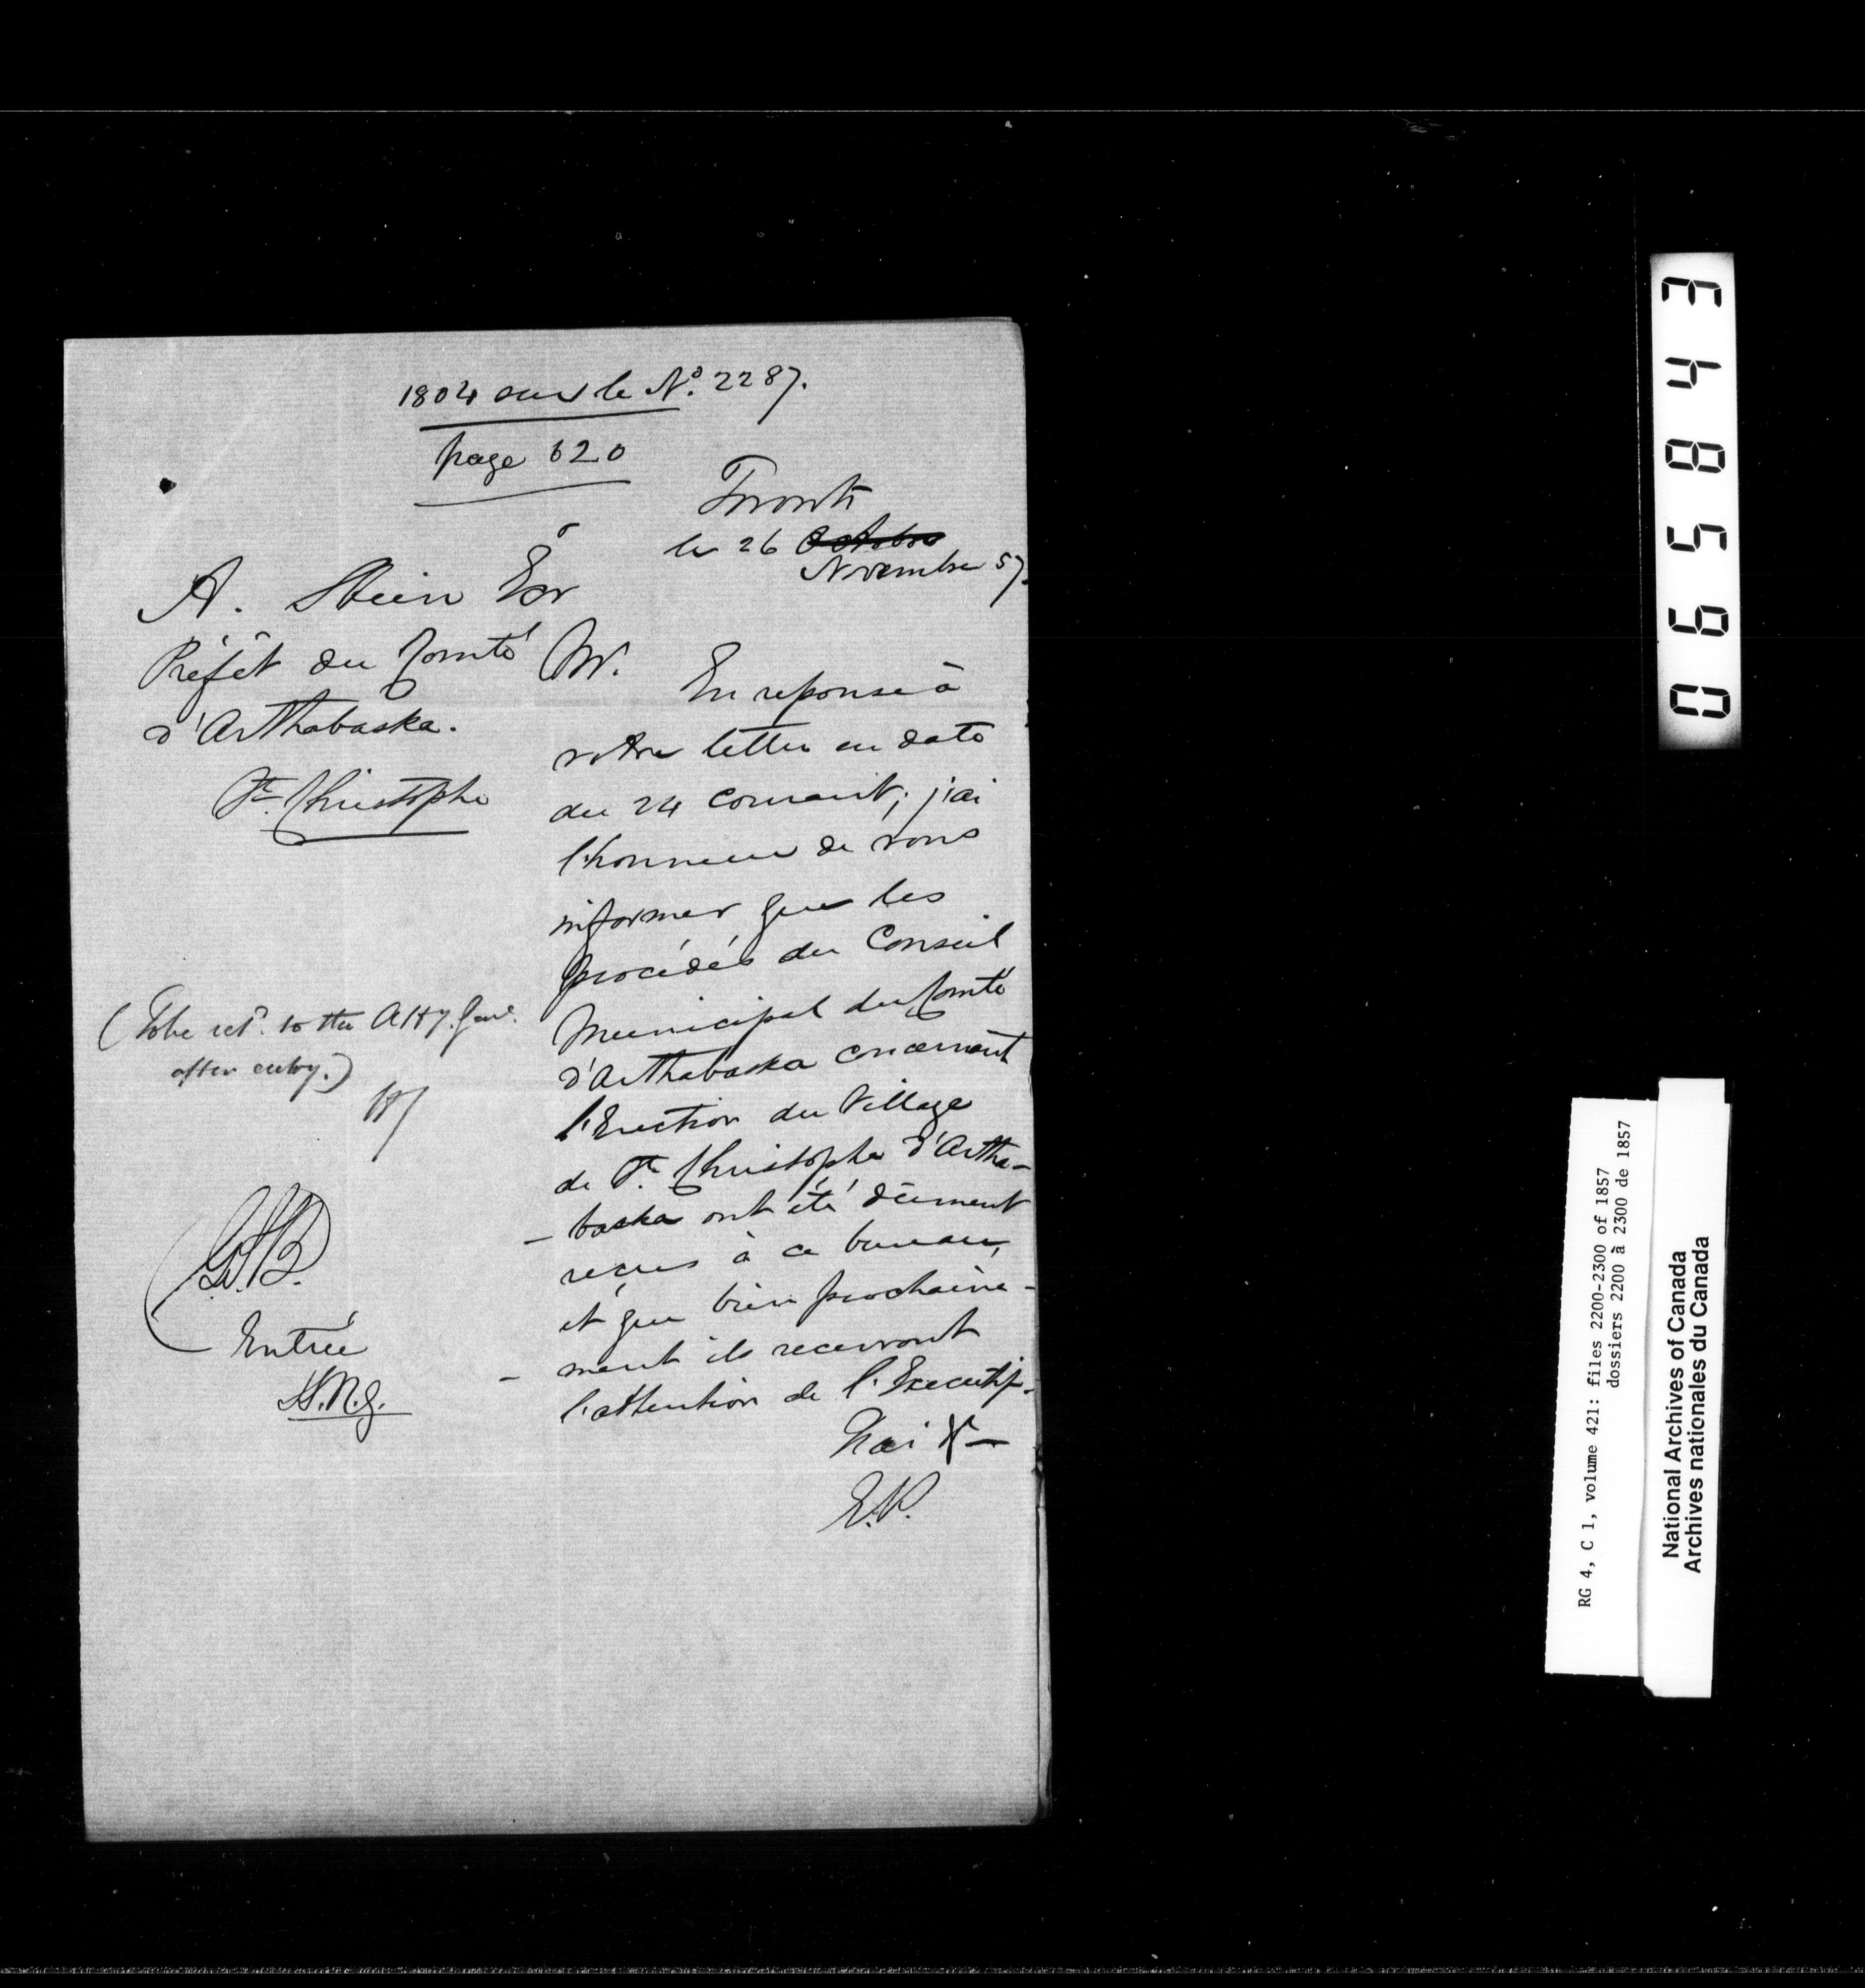 1804 sur le N.º 2287.
page 620
Toronto
le 26 Octobre
Novembre 57.
A. Stein Esr
Préfet du Comté
d'Arthabaska.
St. Christophe
M.
En reponse à
votre lettre en date
du 24 courant, j'ai
l'honneur de vous
informer que les
procédés du Conseil
Municipal du Comté
d'Arthabaska concernant
l'Erection du Village
de St. Christophe d'Artha-
- baska ont été dûment
recus à ce bureau,
et que bien prochaine-
- ment ils recevront
l'attention de l'Executif.
J'ai &c
E.P.
(To be retd. to the Atty. Genl.
after entry.)
Entrée
065843
RG 4, C 1, volume 421: files 2200-2300 of 1857
dossiers 2200 à 2300 de 1857
National Archives of Canada
Archives nationales du Canada